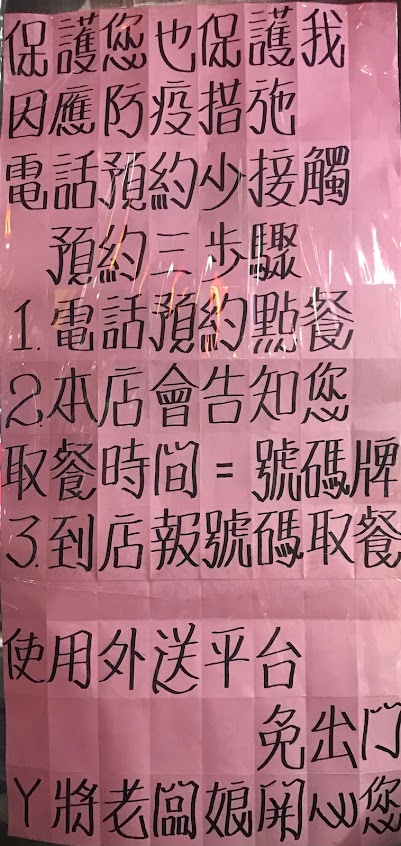 保護您也保護我
因應防疫措施
電話預約少接觸
預約三步驟
1.電話預約點餐
2.本店會告知您
取餐時間=號碼牌
3.到店報號碼取餐
使用外送平台
免出門
丫將老闆娘開心您